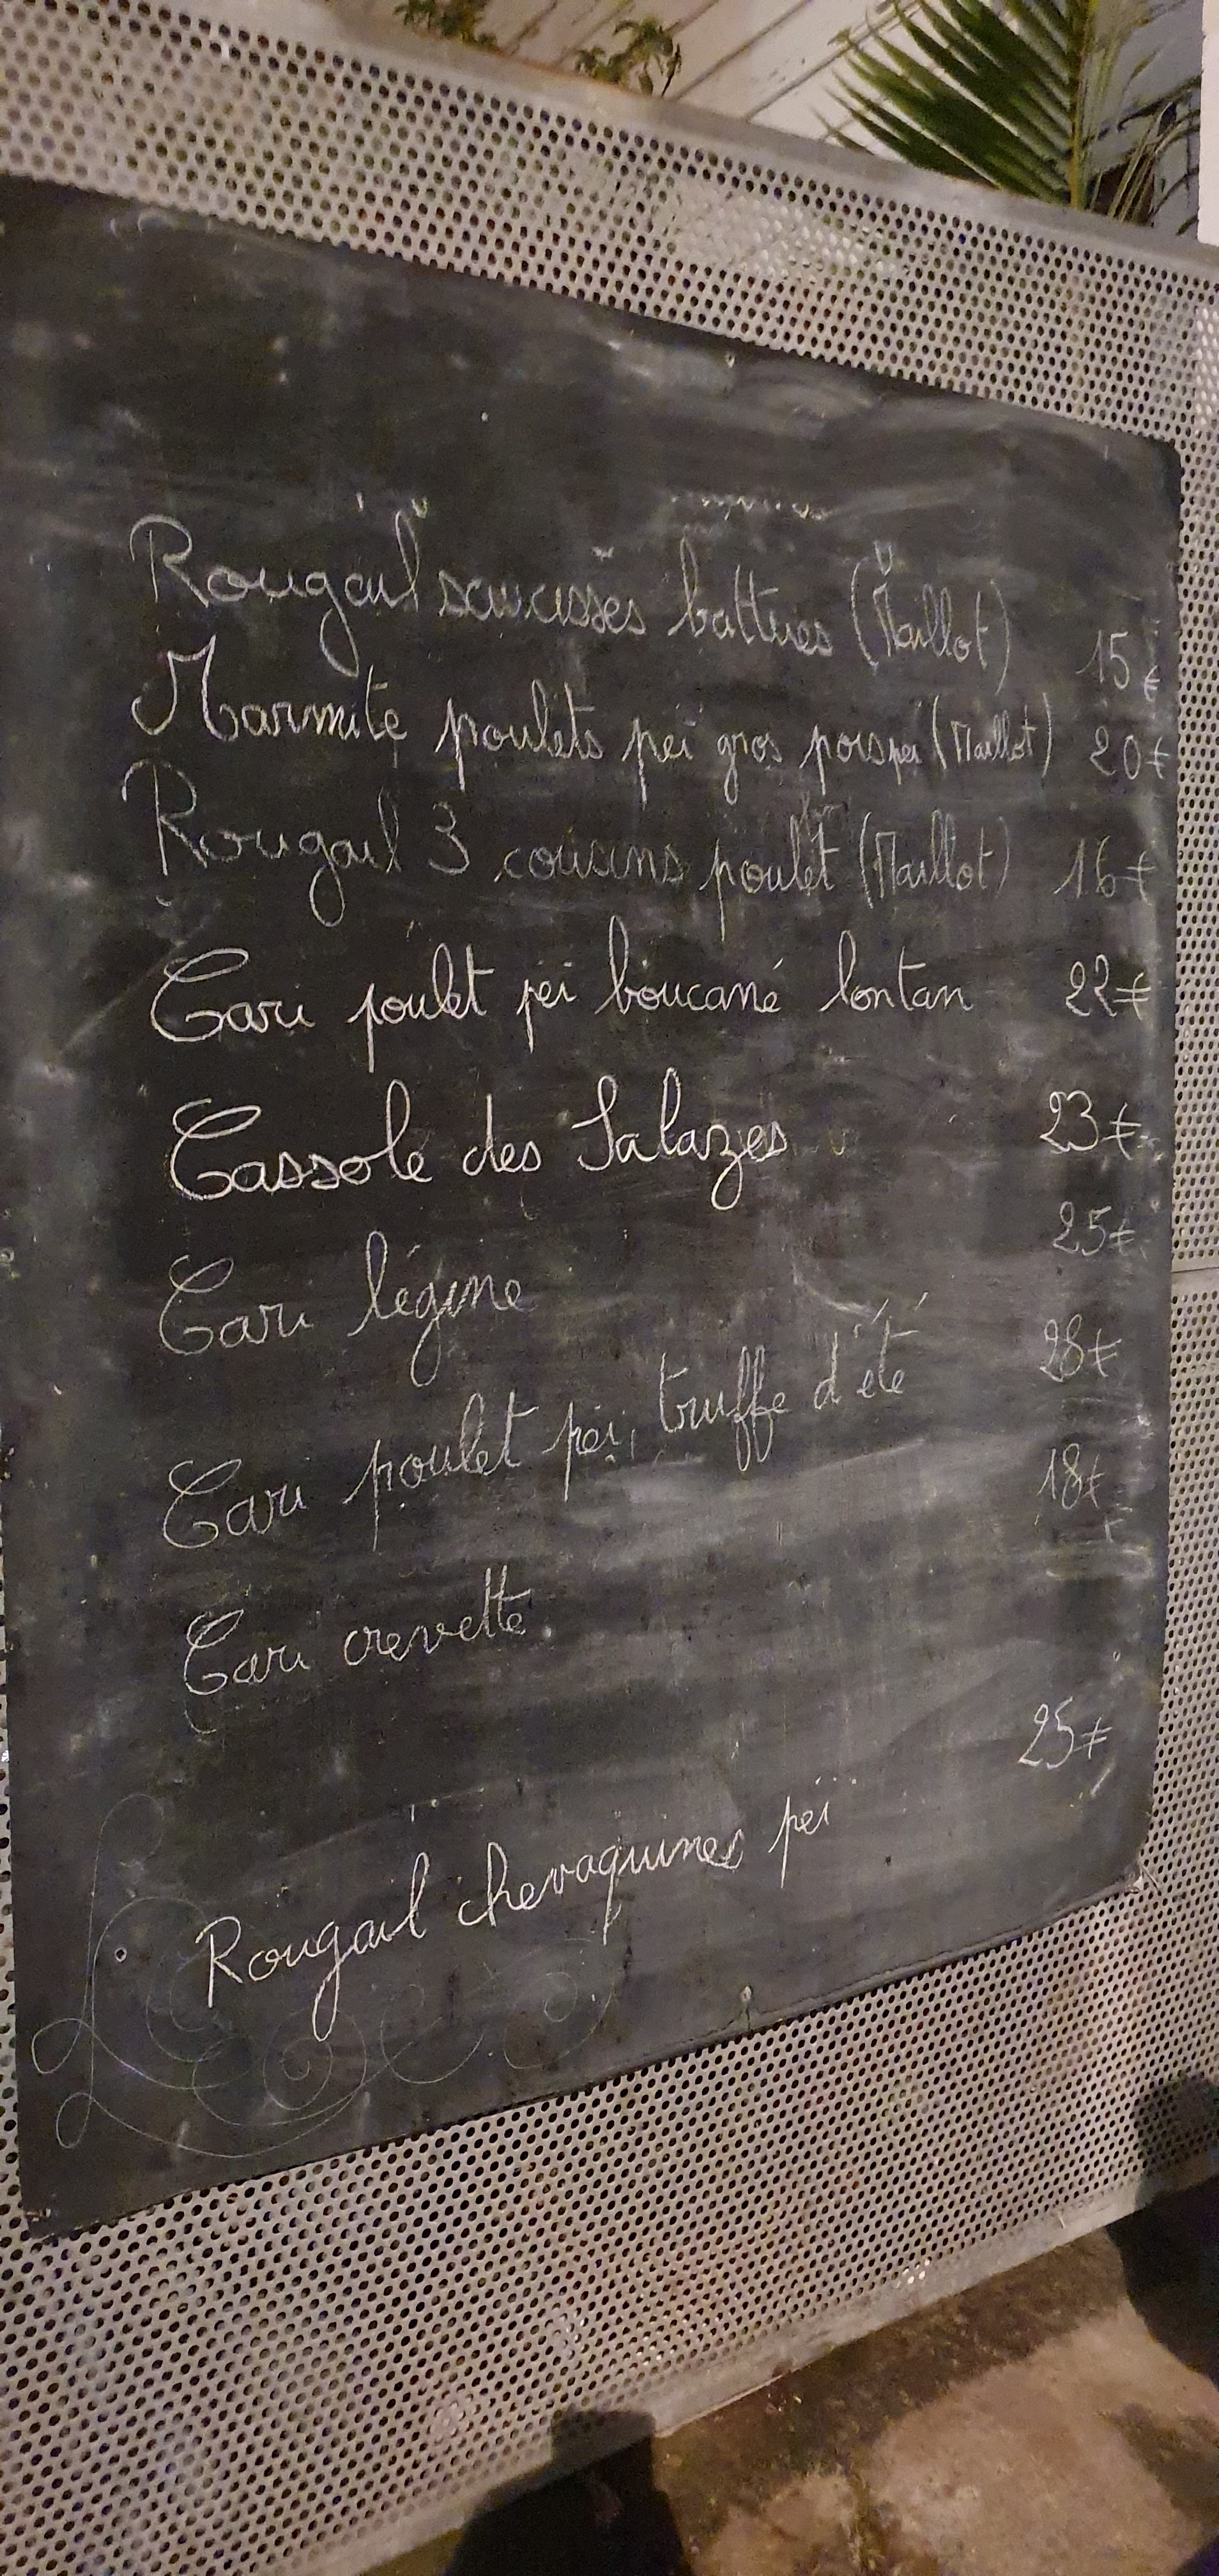 Rougail saucisses battues (Maillot) 15€
Marmite poulets péi gros pois péi (Maillot) 20€
Rougail 3 cousins poulet (Maillot) 16€
Cari poulet péi boucané lontan 22€
Cassole des Salazes 23€
Cari légine 25€
Cari poulet péi, truffe d'été 28€
Cari crevette 18€
Rougail chevaquines péi 25€